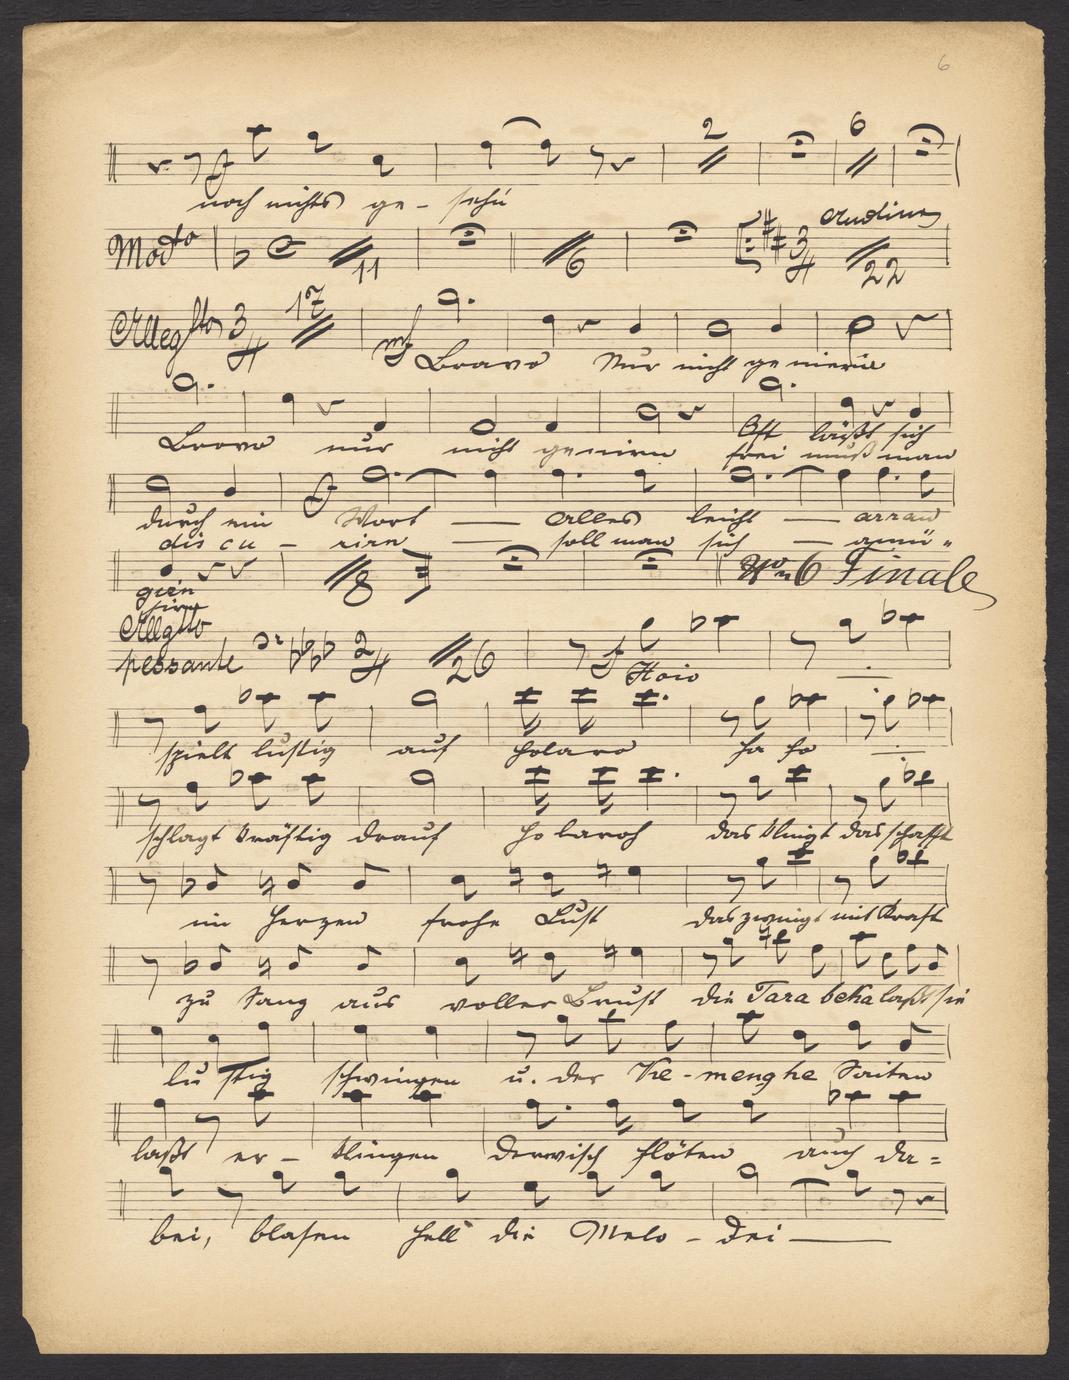 6
2 6
noch nichts ge - sehn
Modto 11 6 3/4 Andino 22
Allegtto 3/4 17
mf Bravo Nur nicht genieren
Bravo nur nicht geniren Oft läßt sich
frei muß man
durch ein Wort — Alles leicht — arran
discu - riren — soll man sich — amü"
giren 8 No 6 Finale
siren
Allegtto
pessante 2/4 26 f Hoio
spielt lustig auf Holaro ha ho
schlagt kräftig drauf Ho laroh das klingt das schafft
im Herzen frohe Lust das zwingt mit Kraft
zu Sang aus voller Brust die Tarabeka laßt sie
lustig schwingen u. der Ke - menghe Saiten
laßt er - klingen Derwisch flöten auch da=
bei, blasen hell die Melo - dei —